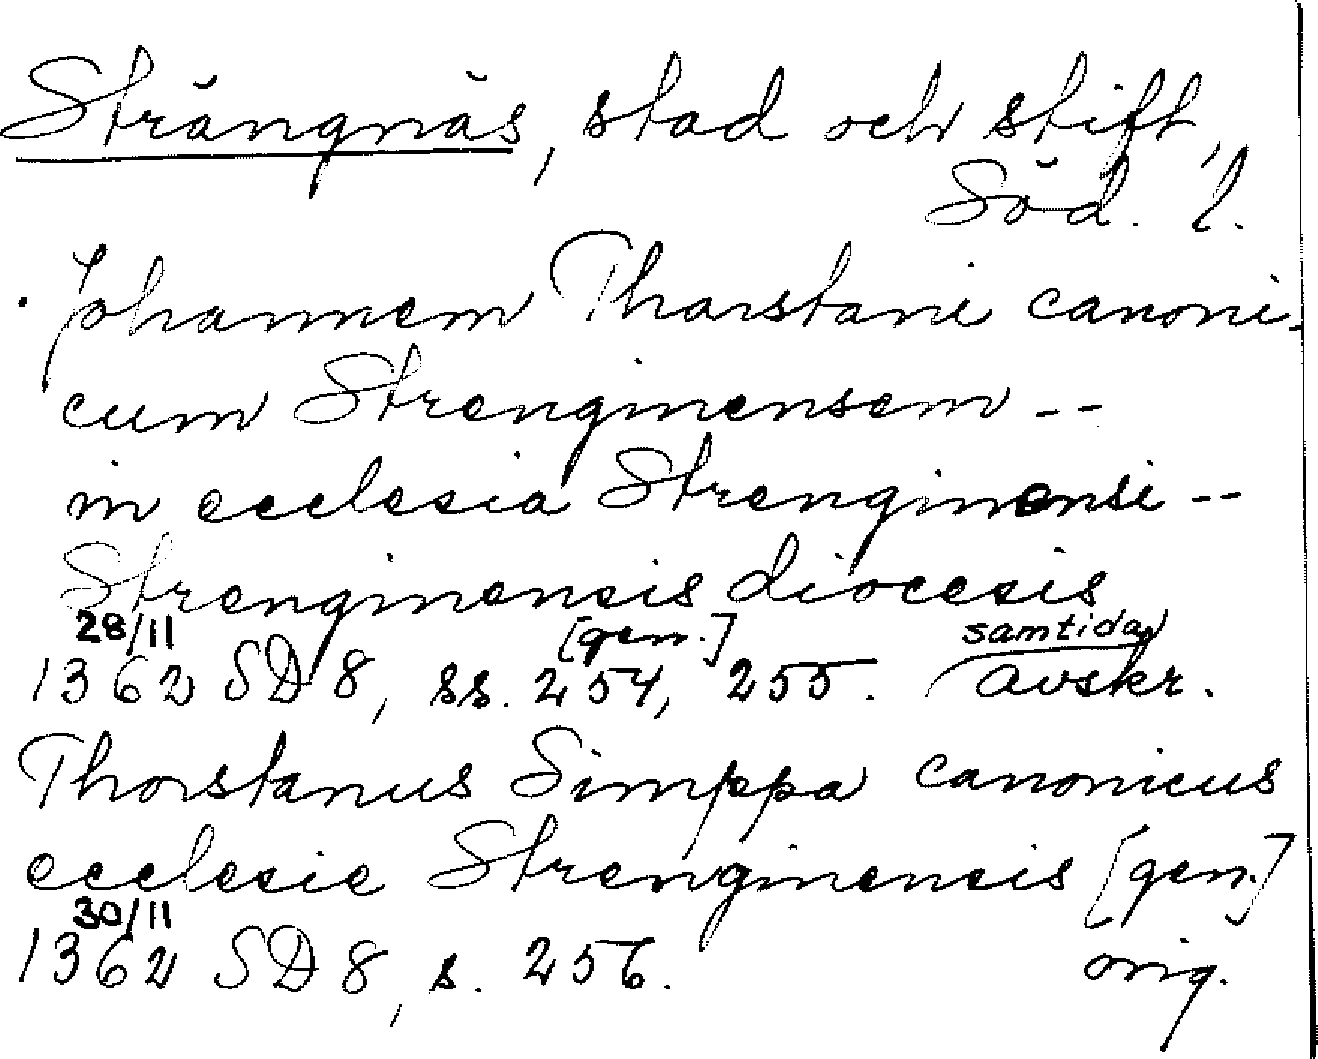 Strängnäs, stad och stift,
Söd. l.
Johannem Tharstani canoni-
cum Strenginensem --
in ecclesia Strenginensi --
Strenginensis diocesis
28/11 [gen.] samtida
1362 SD 8, ss. 254, 255. avskr.
Thorstanus Simppa canonicus
ecclesie Strenginensis [gen.]
30/11
1362 SD 8, s. 256. orig.